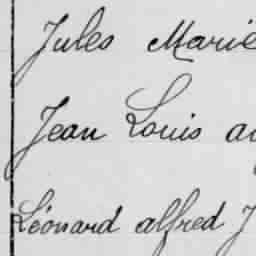 Jules Marie
Jean Louis au
Léonard alfred J